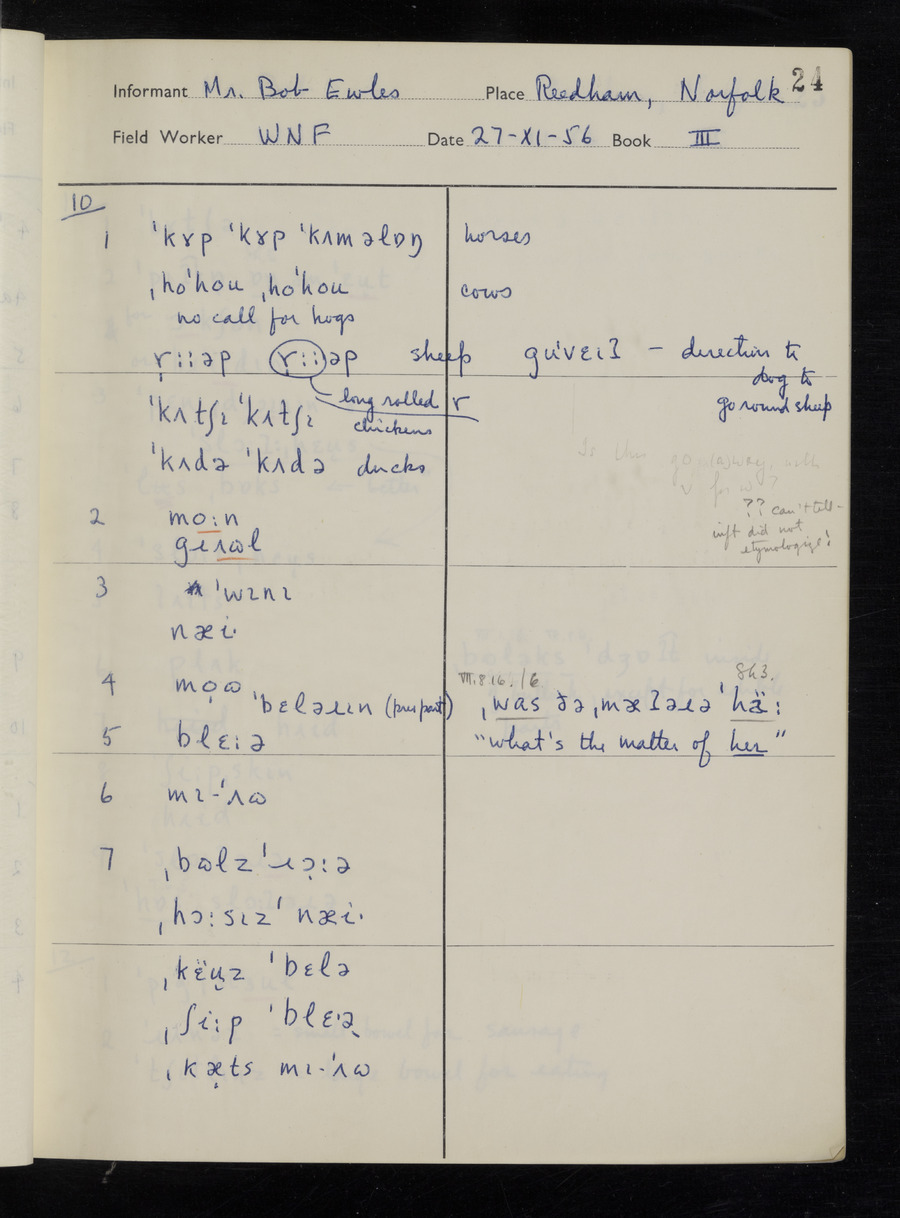 24
Informant Mr. Bob Ewles Place Reedham, Norfolk
Field Worker WNF Date 27-XI-56 Book III
10
1 ˈkɤp ˈkɤp ˈkʌm əlɒŋ horses
ˌhoˈhou ˌhoˈhou cows
no call for hogs
r̩ːːəp rːːəp sheep guˈvɛɪʔ – direction to
dog to
go round sheep
long rolled r
ˈkʌtʃɪ ˈkʌtʃɪ chickens
ˈkʌdə ˈkʌdə ducks
Is this go (a)way, with
v for w?
?? can't tell –
inft did not
etymologize!
2 moːn
gɛɪʌɷl
3 ˈwɪnɪ
næi·
4 mo̩ɷ VII.8.16./6 8h3.
ˈbeləɪɪn (pres part) ˌwas ðə ˌmæʔəɹə ˈhäː
5 blɛːə "what's the matter of her"
6 mɪ-ˈʌɷ
7 ˌbɷlz ˈɹɔ̩ːə
ˌhɔːsɪz ˈnæi·
ˌkëu̩z ˈbelə
ˌʃiːp ˈblɛ·ə
ˌkæ̩ts mɪ-ˈʌɷ